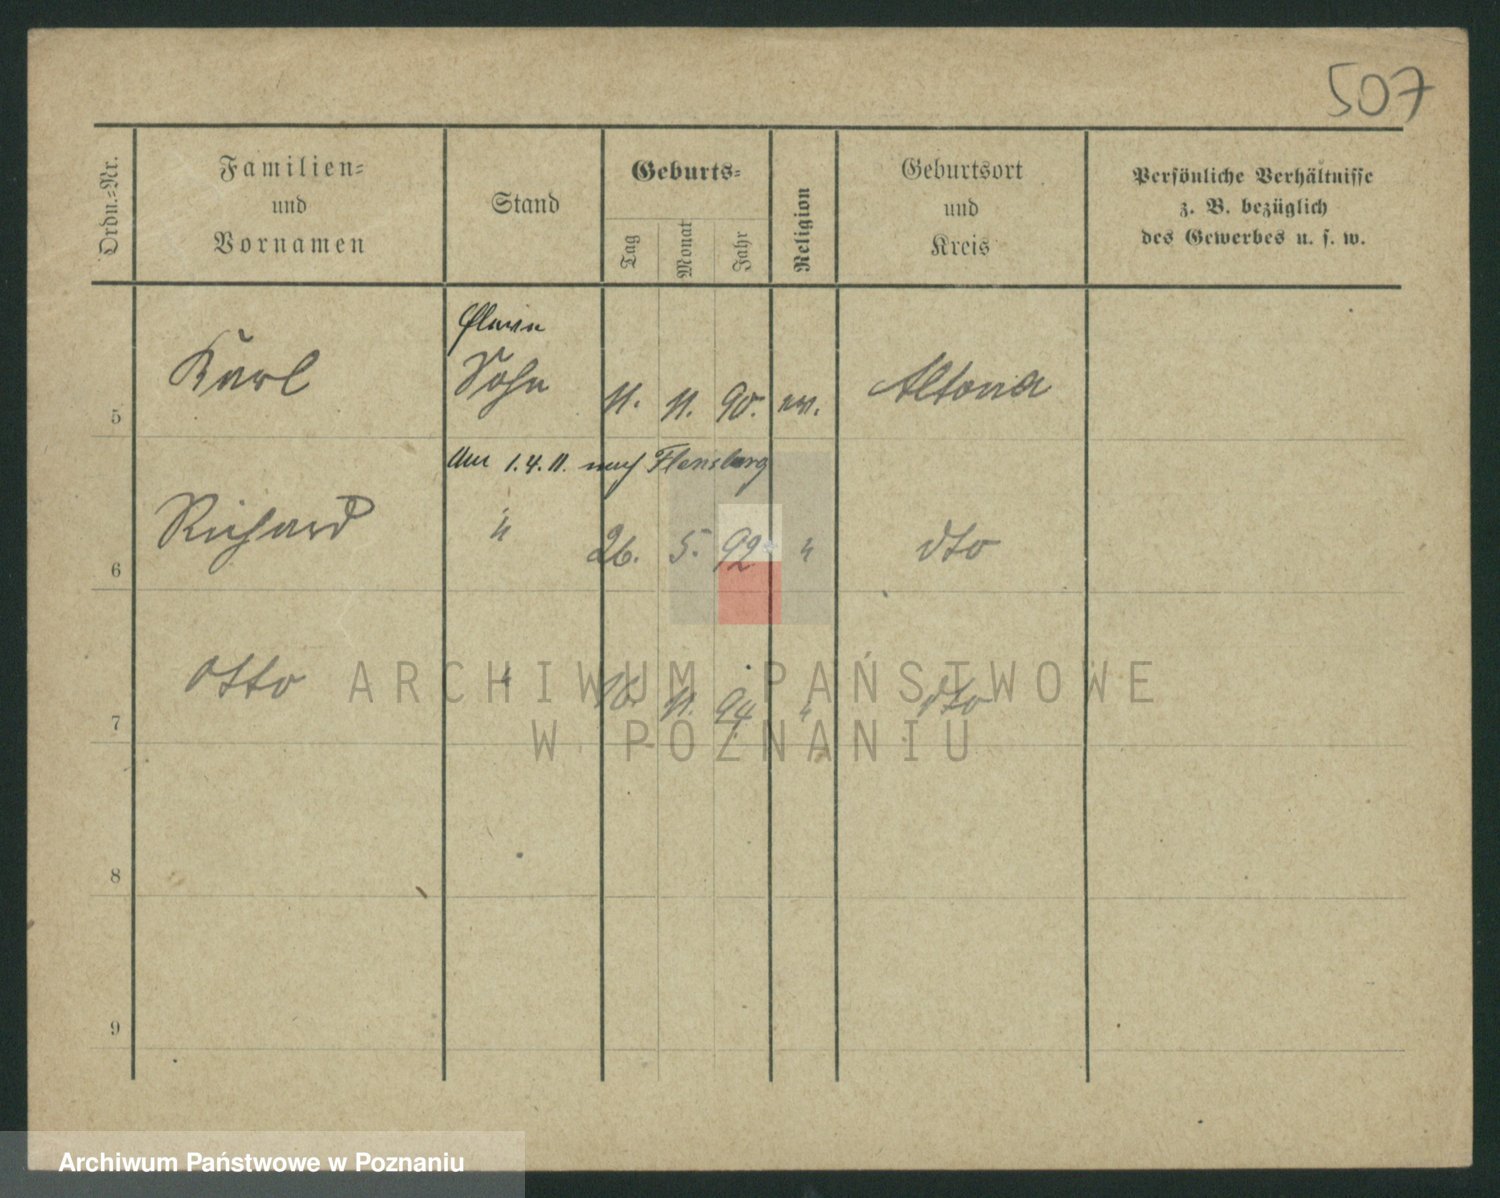 507
Ordn.-Nr.
Familien-
und
Vornamen
Stand
Geburts-
Tag
Monat
Jahr
Religion
Geburtsort
und
Kreis
Persönliche Verhältnisse
z. B. bezüglich
des Gewerbes u. s. w.
5 Karl Sohn 11. 11. 90. ev. Altona
1.4.11. nach Flensburg
6 Richard " 26. 5. 92 " dto
7 Otto " 16. 11. 94 " dto
8
9
ARCHIWUM PAŃSTWOWE
W POZNANIU
Archiwum Państwowe w Poznaniu